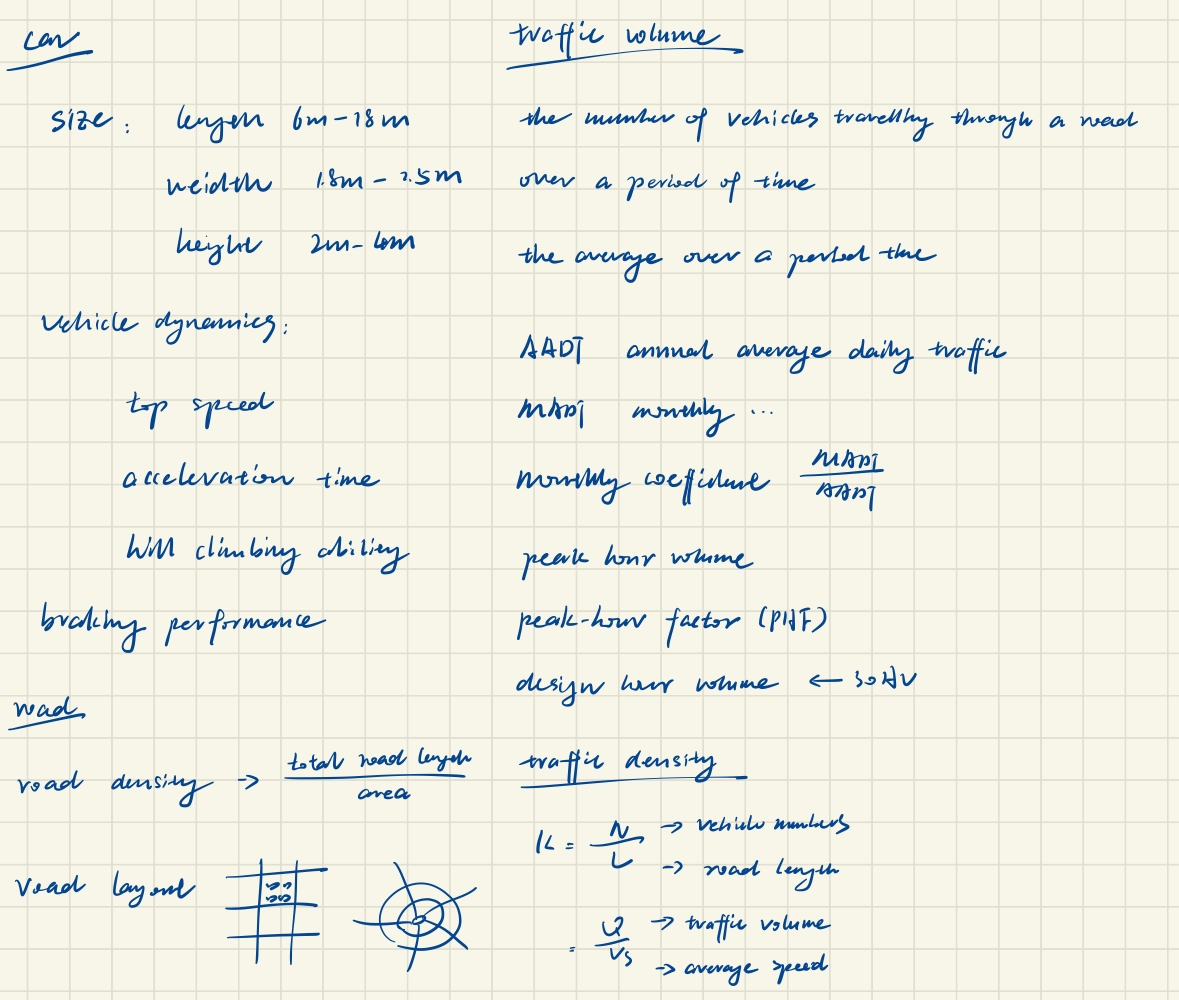 car
size: length 6m-18m
weidth 1.8m - 2.5m
height 2m-4m
vehicle dynamics:
top speed
acceleration time
hill climbing ability
braking performance
road
road density → total road length
area
road layout
traffic volume
the number of vehicles travelling through a road
over a period of time
the average over a period time
AADT annual average daily traffic
MADT monthly ...
monthly coefficient MADT
AADT
peak hour volume
peak-hour factor (PHF)
design hour volume ← 30HV
traffic density
K = N → vehicle numbers
L → road length
= Q → traffic volume
Vs → average speed